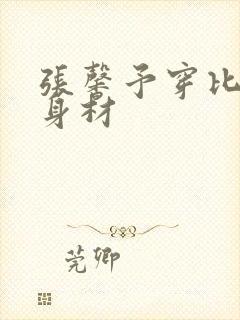 張馨予穿比
身材
莞卿